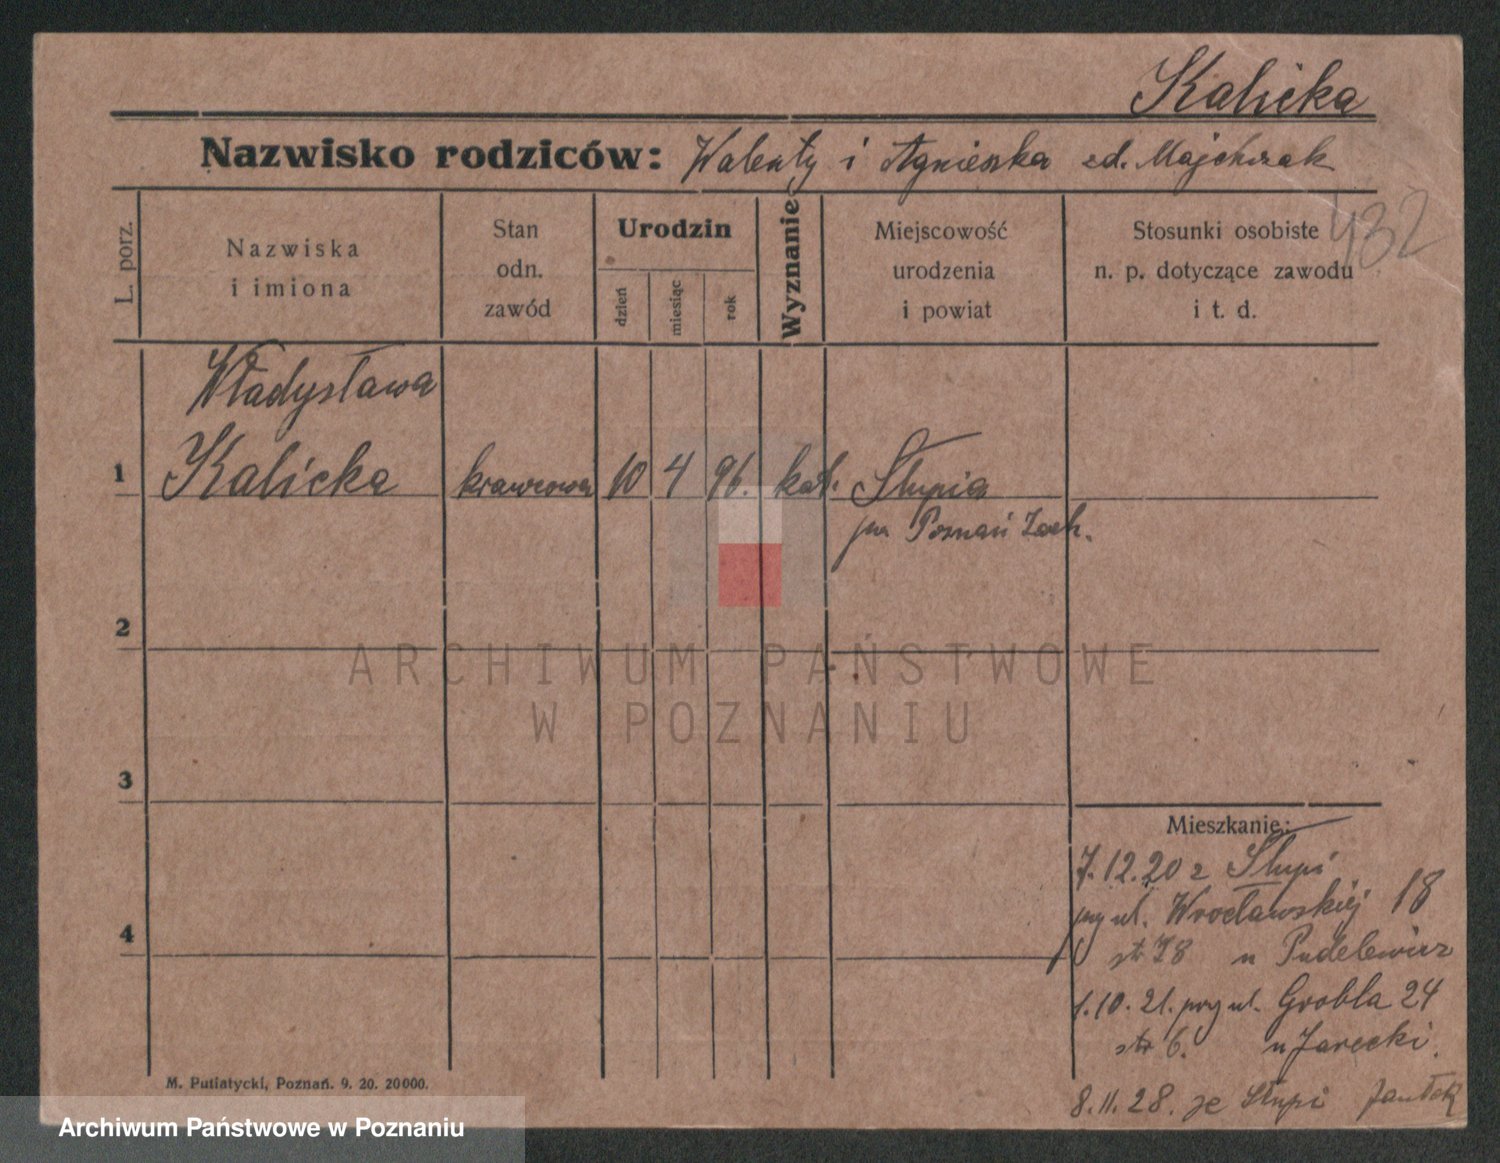 Kalicka
Nazwisko rodziców: Walenty i Agnieszka zd. Majchrzak
432
L. porz.
Nazwiska
i imiona
Stan
odn.
zawód
Urodzin
dzień
miesiąc
rok
Wyznanie
Miejscowość
urodzenia
i powiat
Stosunki osobiste
n. p. dotyczące zawodu
i t. d.
Władysława
1 Kalicka krawcowa 10 4 96. kat. Słupia
pw Poznań Zach.
2
3
4
Mieszkanie:
7.12.20 z Słupi
przy ul. Wrocławskiej 18
str 78 u Pudelewicz
1.10.21. przy ul. Grobla 24
str 6. u Jarecki.
8.11.28. ze Słupi
M. Putiatycki, Poznań. 9. 20. 20000.
ARCHIWUM PAŃSTWOWE
W POZNANIU
Archiwum Państwowe w Poznaniu